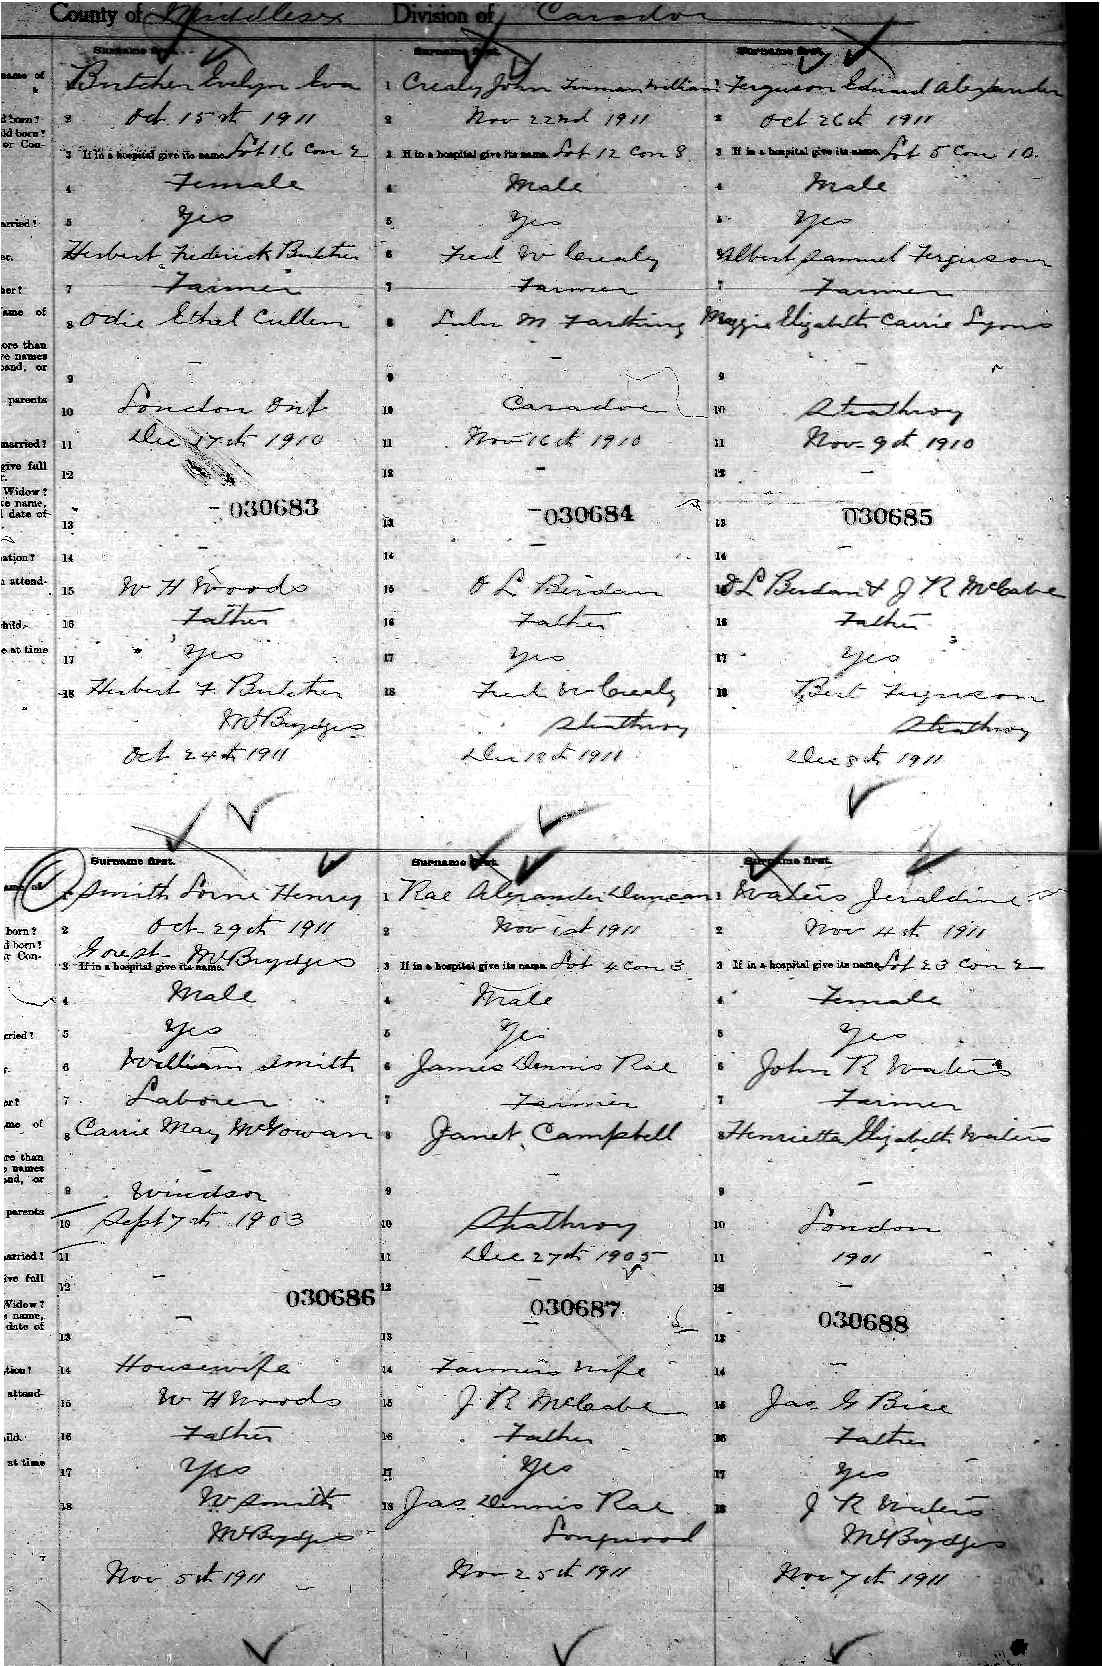 County of Middlesex Division of Caradoc
Surname first.
Butcher Evelyn Eva
2 Oct 15th 1911
3 If in a hospital give its name. Lot 16 Con 2
4 Female
5 Yes
Herbert Frederick Butcher
7 Farmer
8 Odie Ethel Cullen
9 –
10 London Ont
11 Dec 17th 1910
12
– 030683
13
14 –
15 W H Woods
16 Father
17 Yes
18 Herbert F. Butcher
Mt Brydges
Oct 24th 1911
Surname first.
1 Crealy John Furman William
2 Nov 22nd 1911
3 If in a hospital give its name. Lot 12 Con 8
4 Male
5 Yes
6 Fred W Crealy
7 Farmer
8 Lulu M Farthing
9 –
10 Caradoc
11 Nov 16th 1910
12 –
– 030684
13
14 –
15 O L Berdan
16 Father
17 Yes
18 Fred W Crealy
Strathroy
Dec 18th 1911
Surname first.
1 Ferguson Edward Alexander
2 Oct 26th 1911
3 If in a hospital give its name. Lot 5 Con 10
4 Male
5 Yes
Albert Samuel Ferguson
7 Farmer
Maggie Elizabeth Carrie Lyons
9
10 Strathroy
11 Nov 9th 1910
12 –
030685
13
14 –
O L Berdan & J R McCabe
16 Father
17 Yes
18 Bert Ferguson
Strathroy
Dec 8th 1911
Surname first.
1 Smith Lorne Henry
2 Oct 29th 1911
Mt Brydges
3 If in a hospital give its name.
4 Male
5 Yes
6 William Smith
7 Laborer
8 Carrie May McGowan
–
9 Windsor
10 Sept 7th 1903
11
12 –
030686
–
13
14 Housewife
15 W H Woods
16 Father
17 Yes
18 W Smith
Mt Brydges
Nov 5th 1911
Surname first.
1 Rae Alexander Duncan
2 Nov 1st 1911
3 If in a hospital give its name. Lot 4 Con 3
4 Male
5 Yes
6 James Dennis Rae
7 Farmer
8 Janet Campbell
9 –
10 Strathroy
11 Dec 27th 1905
12 –
030687
–
13
14 Farmers Wife
15 J R McCabe
16 Father
17 Yes
18 Jas. Dennis Rae
Longwood
Nov 25th 1911
Surname first.
1 Waters Jeraldine
2 Nov 4th 1911
3 If in a hospital give its name Lot 23 Con 2
4 Female
5 Yes
6 John R Waters
7 Farmer
8 Henrietta Elizabeth Waters
9 –
10 London
11 1901
12 –
030688
13
14 –
15 Jas. G Bice
16 Father
17 Yes
18 J R Waters
Mt Brydges
Nov 7th 1911